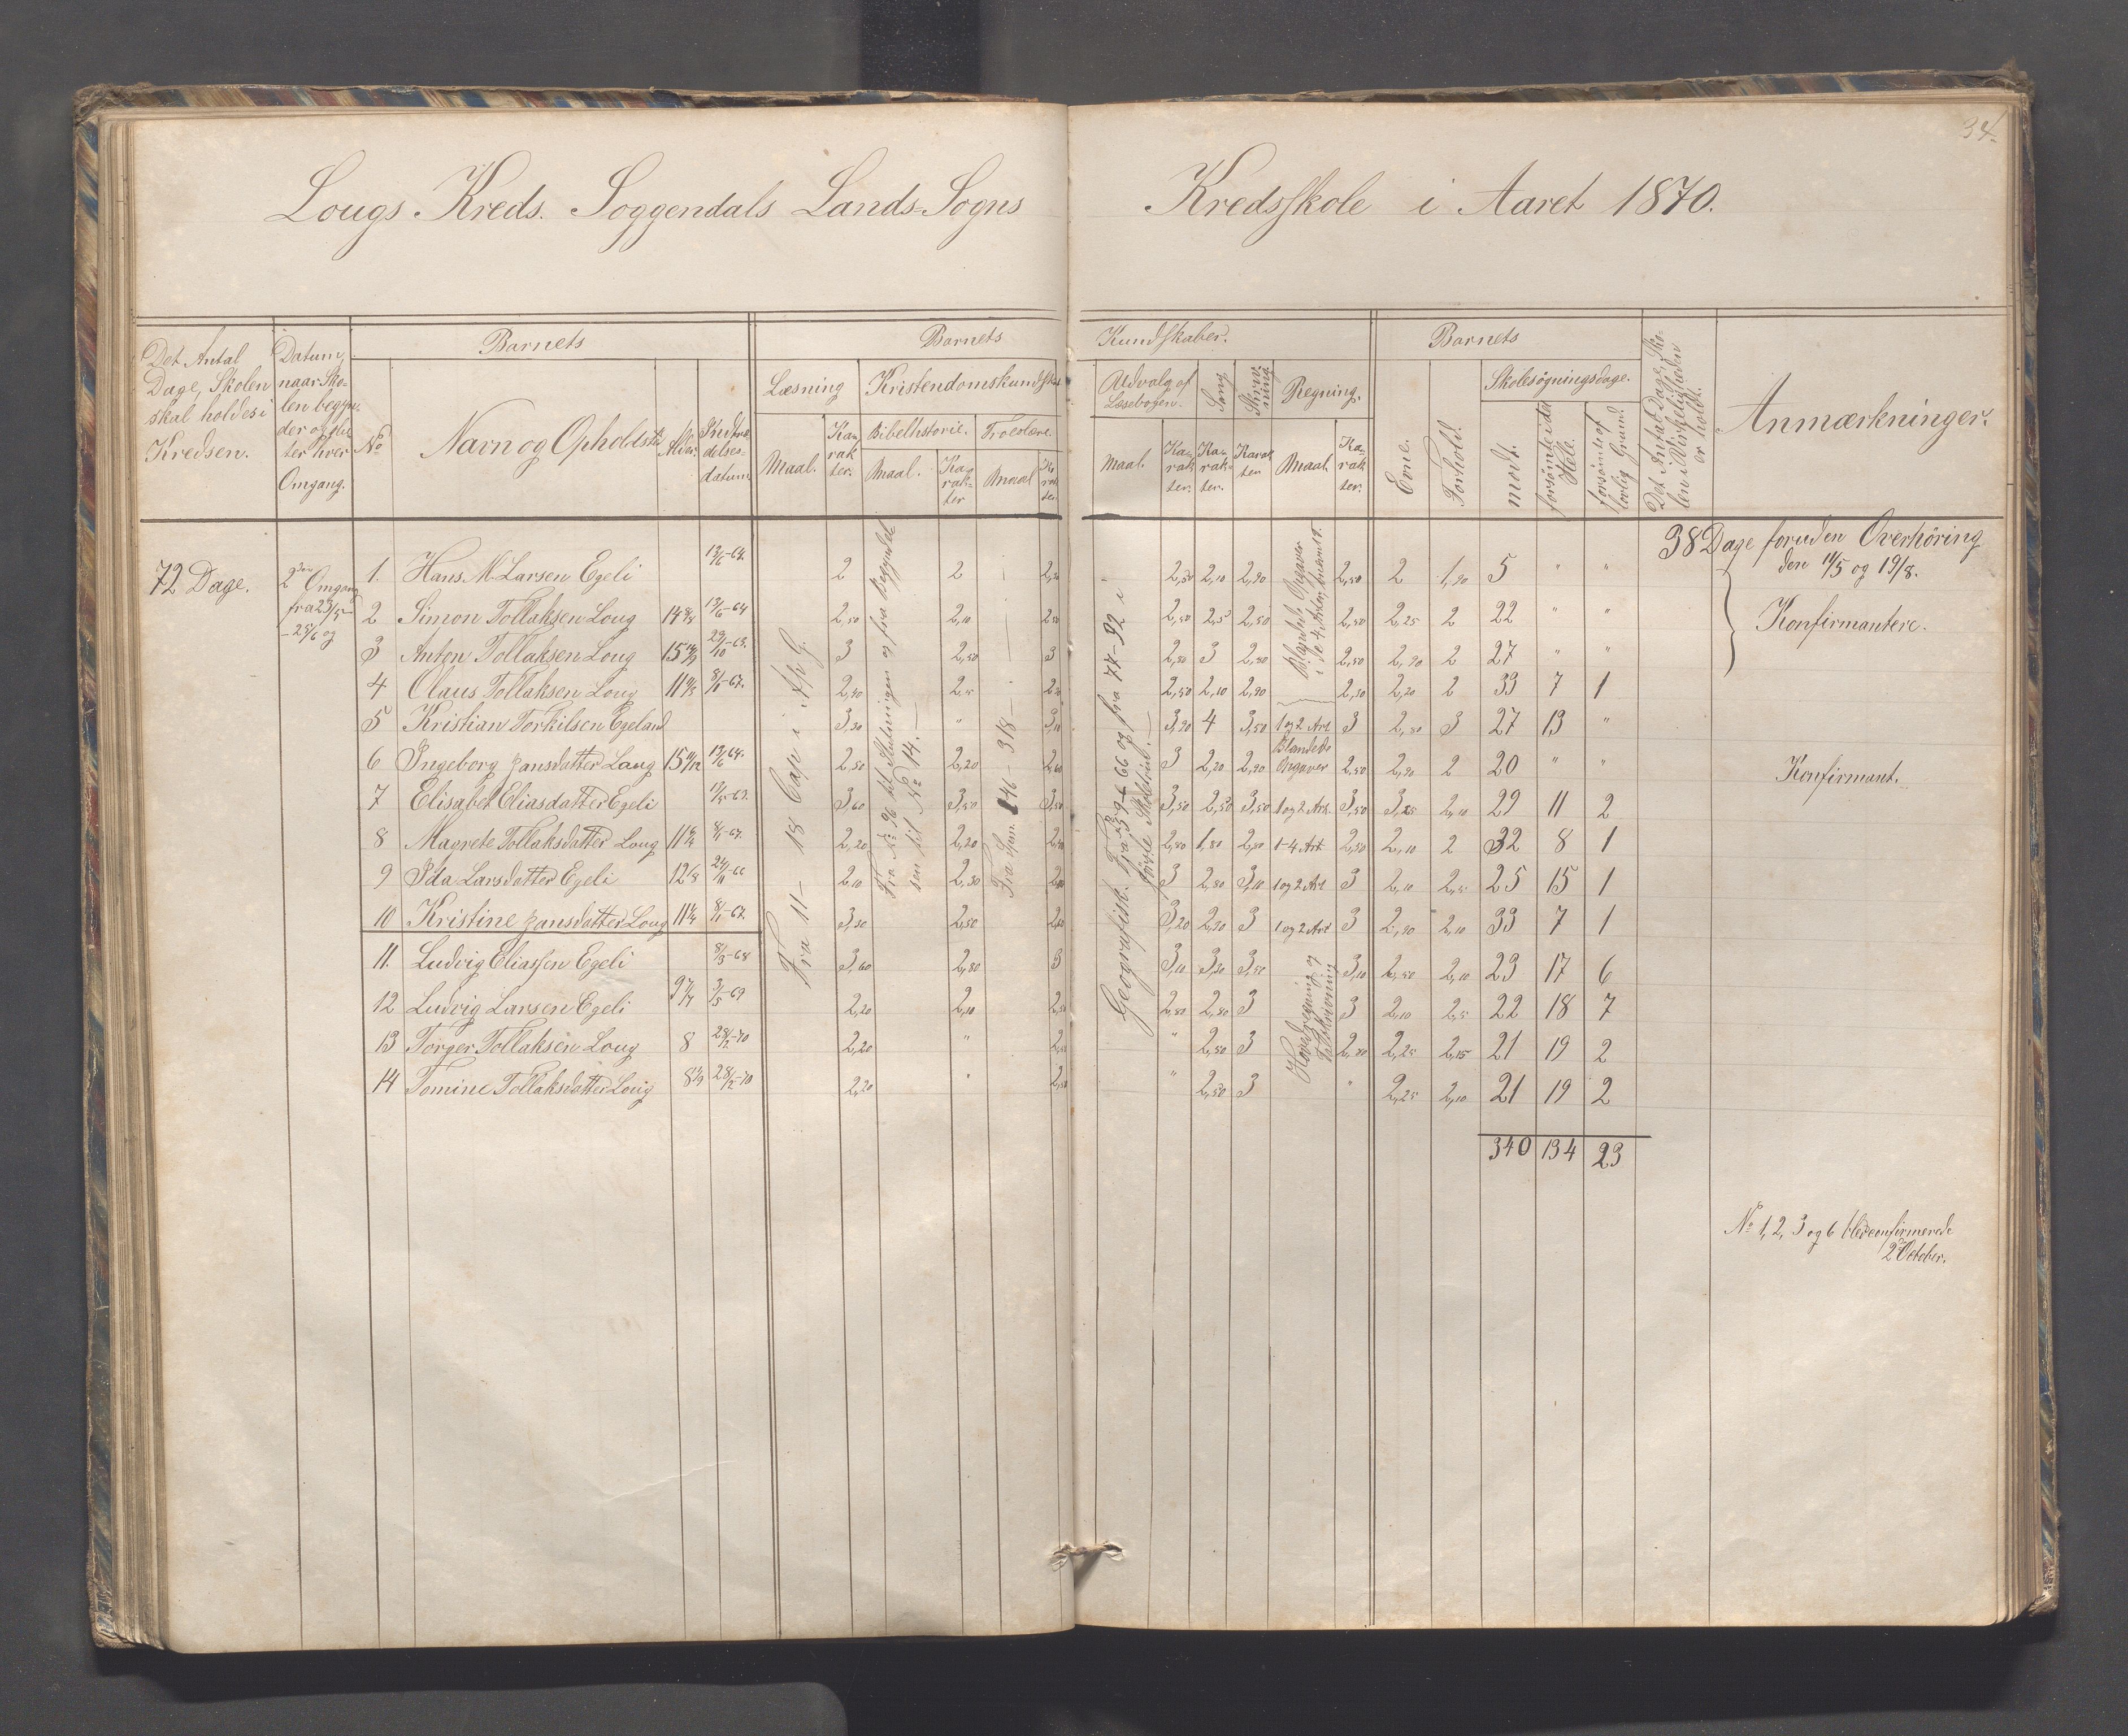 34.
Lougs Kreds. Soggendals Lands-Sogns Kredsskole i Aaret 1870.
Det Antal Dage, Skolen skal holdes i Kredsen.
Datum, naar Skolen begynder og slutter hver Omgang.
Barnets
No
Navn og Opholdssted
Alder.
Indtrædelsesdatum.
Barnets Kundskaber.
Læsning
Maal.
Karakter.
Kristendomskundskab
Bibelhistorie.
Maal.
Karakter
Troeslære.
Maal
Karakter
Udvalg af Læsebogen.
Maal.
Karakter.
Sang
Karakter.
Skrivning.
Karakter
Regning.
Maal.
Karakter.
Barnets
Evne.
Forhold.
Skolesøgningsdage.
mødt.
forsømte i det Hele.
forsømte af lovlig Grund.
Det Antal Dage, Skolen i Virkeligheden er holdt.
Anmærkninger.
72 Dage.
2den Omgang
fra 23/5
- 25/6 og
38 Dage foruden Overhöring
den 11/5 og 19/8.
1. Hans M. Larsen Egeli 13/6-64. 2 2 2,50 2,10 2,20 2,50 2 1,90 5 " "
2 Simon Tollaksen Loug 13/6-64 2,50 2,10 2,50 2,5 2,50 2,50 2,25 2 22 " "
Konfirmantere.
3 Anton Tollaksen Loug 29/10-63. 3 2,50 3 2,80 3 2,80 2,50 2,20 2 27 " "
4 Olaus Tollaksen Loug 8/1-67. 2,20 2,5 2,50 2,10 2,20 2,50 2,20 2 33 7 1
5 Kristian Torkilsen Egeland 3,30 " 3,10 3,20 4 3,50 1 og 2 Art 3 2,50 3 27 13 "
6 Ingeborg Hansdatter Loug 13/6-64. 2,50 2,20 2,60 3 2,20 2,20 Blandede Opgaver 2,50 2,20 2 20 " "
Konfirmant.
7 Elisabet Eliasdatter Egeli 11/5-63. 3,60 3,50 3,50 3,50 2,50 3,50 1 og 2 Art. 3,50 3,25 2,10 29 11 2
8 Magrete Tollaksdatter Loug 8/1-67. 2,20 2,20 2,80 1,80 2,80 1-4 Art 2,50 2,10 2 32 8 1
9 Ida Larsdatter Egeli 12 24/11-66 2,10 2,30 3 2,80 3,10 1 og 2 Art 3 2,10 2,5 25 15 1
10 Kristine Hansdatter Loug 8/1-67. 3,30 2,50 3,20 2,20 3 1 og 2 Art 3 2,20 2,10 33 7 1
11. Ludvig Eliassen Egeli 8/3-68 3,60 2,80 3 3,10 3,20 3,50 3,10 2,50 2,10 23 17 6
12 Ludvig Larsen Egeli 3/5-69 2,20 2,10 2,80 2,80 3 3 2,10 2,5 22 18 7
13 Torger Tollaksen Loug 8 28/2-70 2,20 " " 2,50 3 2,80 2,25 2,15 21 19 2
14 Tomine Tollaksdatter Loug 28/2-70 2,20 " " 2,50 3 " 2,25 2,10 21 19 2
Fra 11 - 18 Cap i
Fra No 96 til Slutningen og fra Begyndelsen til No 14.
Fra Spm. 146 - 318
Geografisk. Fra 59 - 66 og fra 77-92 i förste Skoletrin.
Blandede Opgaver i de 4 Arter,
Hovedregning og Talskrivning
340 134 23
No 1, 2, 3 og 6 bleve confirmerede
2 October.